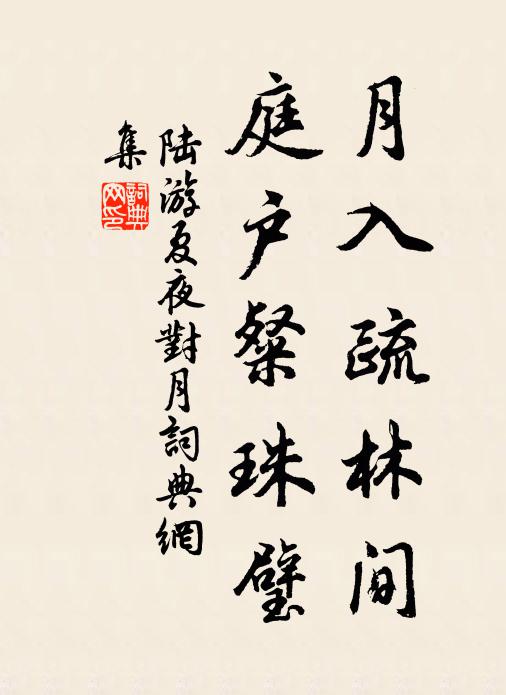 月入疏林间
庭户粲珠璧
陆游夏夜對月詞典網
集
詞典网印